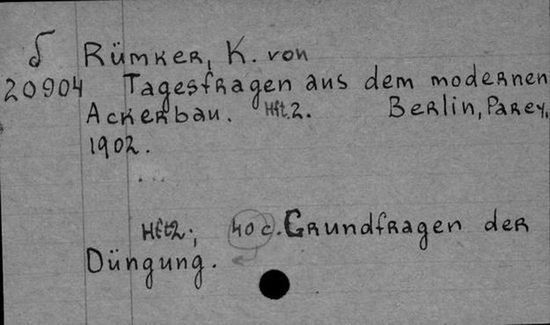 δ Rümker, K. von
20904 Tagesfragen aus dem modernen
Ackerbau. Hft.2. Berlin, Parey,
1902.
...
Hft2.; 40 c. Grundfragen der
Düngung.